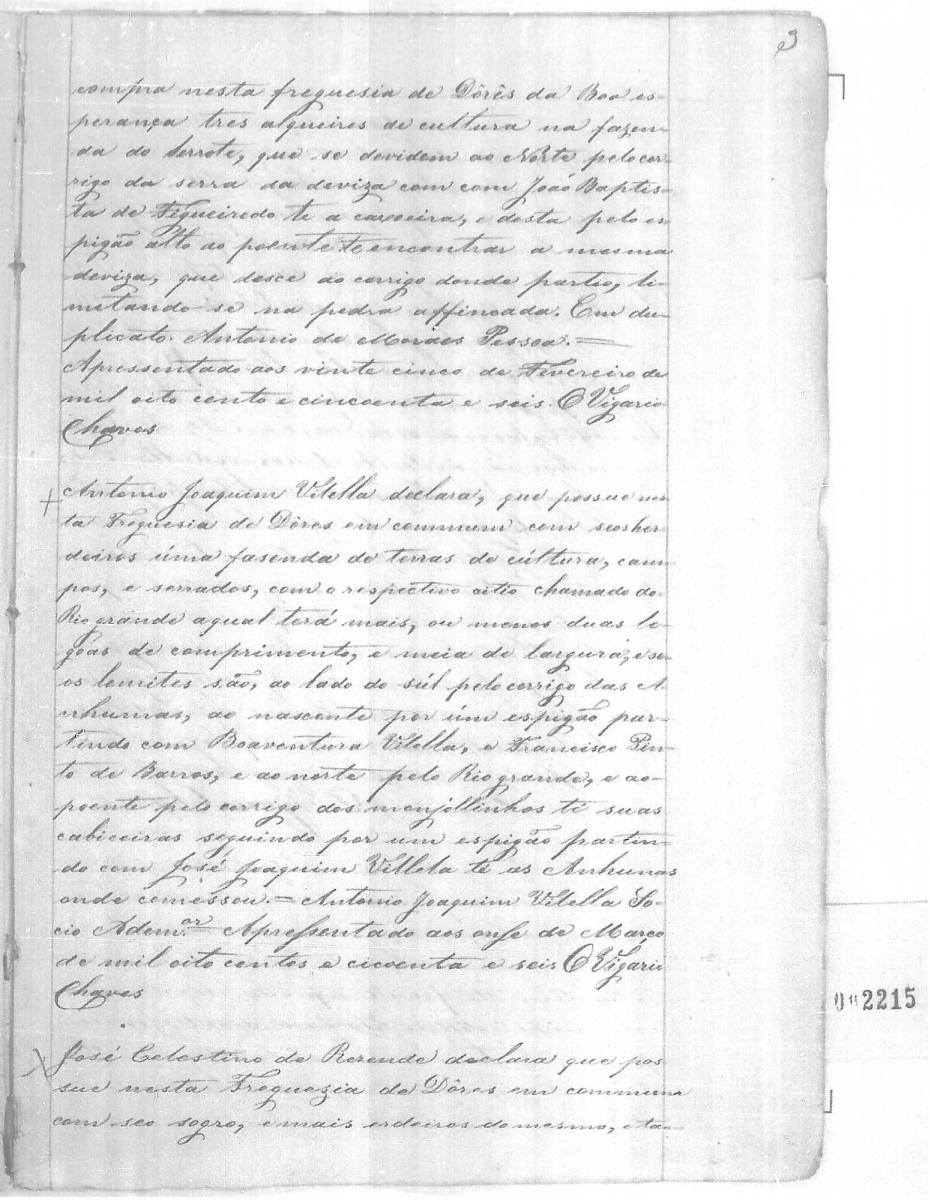 3
compra nesta freguesia de Dôrês da Boa es-
perança tres alqueires de cultura na fazen-
da do Serrote, que se devidem ao Norte pelo cor-
rigo da serra da deviza com com João Baptis-
ta de Figueiredo te a caxoeira, e desta pelo es-
pigão alto ao poente te encontrar a mesma
deviza, que desce ao corrigo donde partio, li-
metando-se na pedra affincada. Em du-
plicato. Antonio de Moraes Pessoa. =
Apressentado aos vinte cinco de Fevereiro de
mil oito cento e cincoenta e seis. O Vigario
Chaves
+ Antonio Joaquim Vilella declara, que possue nes-
ta Freguesia de Dôres em commum com seos her-
deiros úma fasenda de terras de cúltura, cam-
pos, e serrados, com o respectivo citio chamado do
Rio grande a qual terá mais, ou menos duas le-
goas de comprimento, e meia de largura, e se-
os lemites são, ao lado do súl pelo corrigo das A-
nhumas, ao nascente por úm espigão par-
tindo com Boaventura Vilella, e Francisco Pin-
to de Barros, e ao norte pelo Rio grande, e ao
poente pelo corrigo dos monjollinhos té suas
cabiceiras seguindo por um espigão partin-
do com José Joaquim Villela té as Anhumas
onde comessou. = Antonio Joaquim Vilella So-
cio Adem.or = Apressentado aos onse de Março
de mil oito centos e cicoenta e seis O Vigario
Chaves
José Celestino de Rezende declara que pos-
sue nesta Freguezia de Dôres em commum
com seo sogro, e mais erdeiros do mesmo, e tão
2215